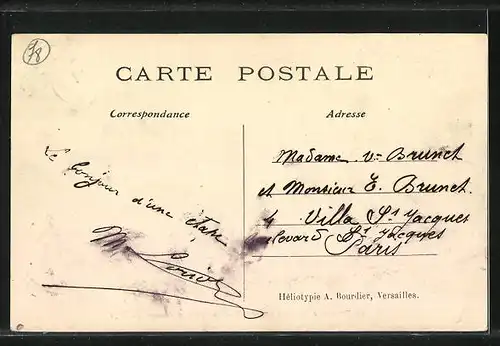 78
CARTE POSTALE
Correspondance
Adresse
Le bonjour d'une
Madame Vve Brunet
et Monsieur E. Brunet
4 Villa St Jacques
boulevard St Jacques
Paris
Héliotypie A. Bourdier, Versailles.